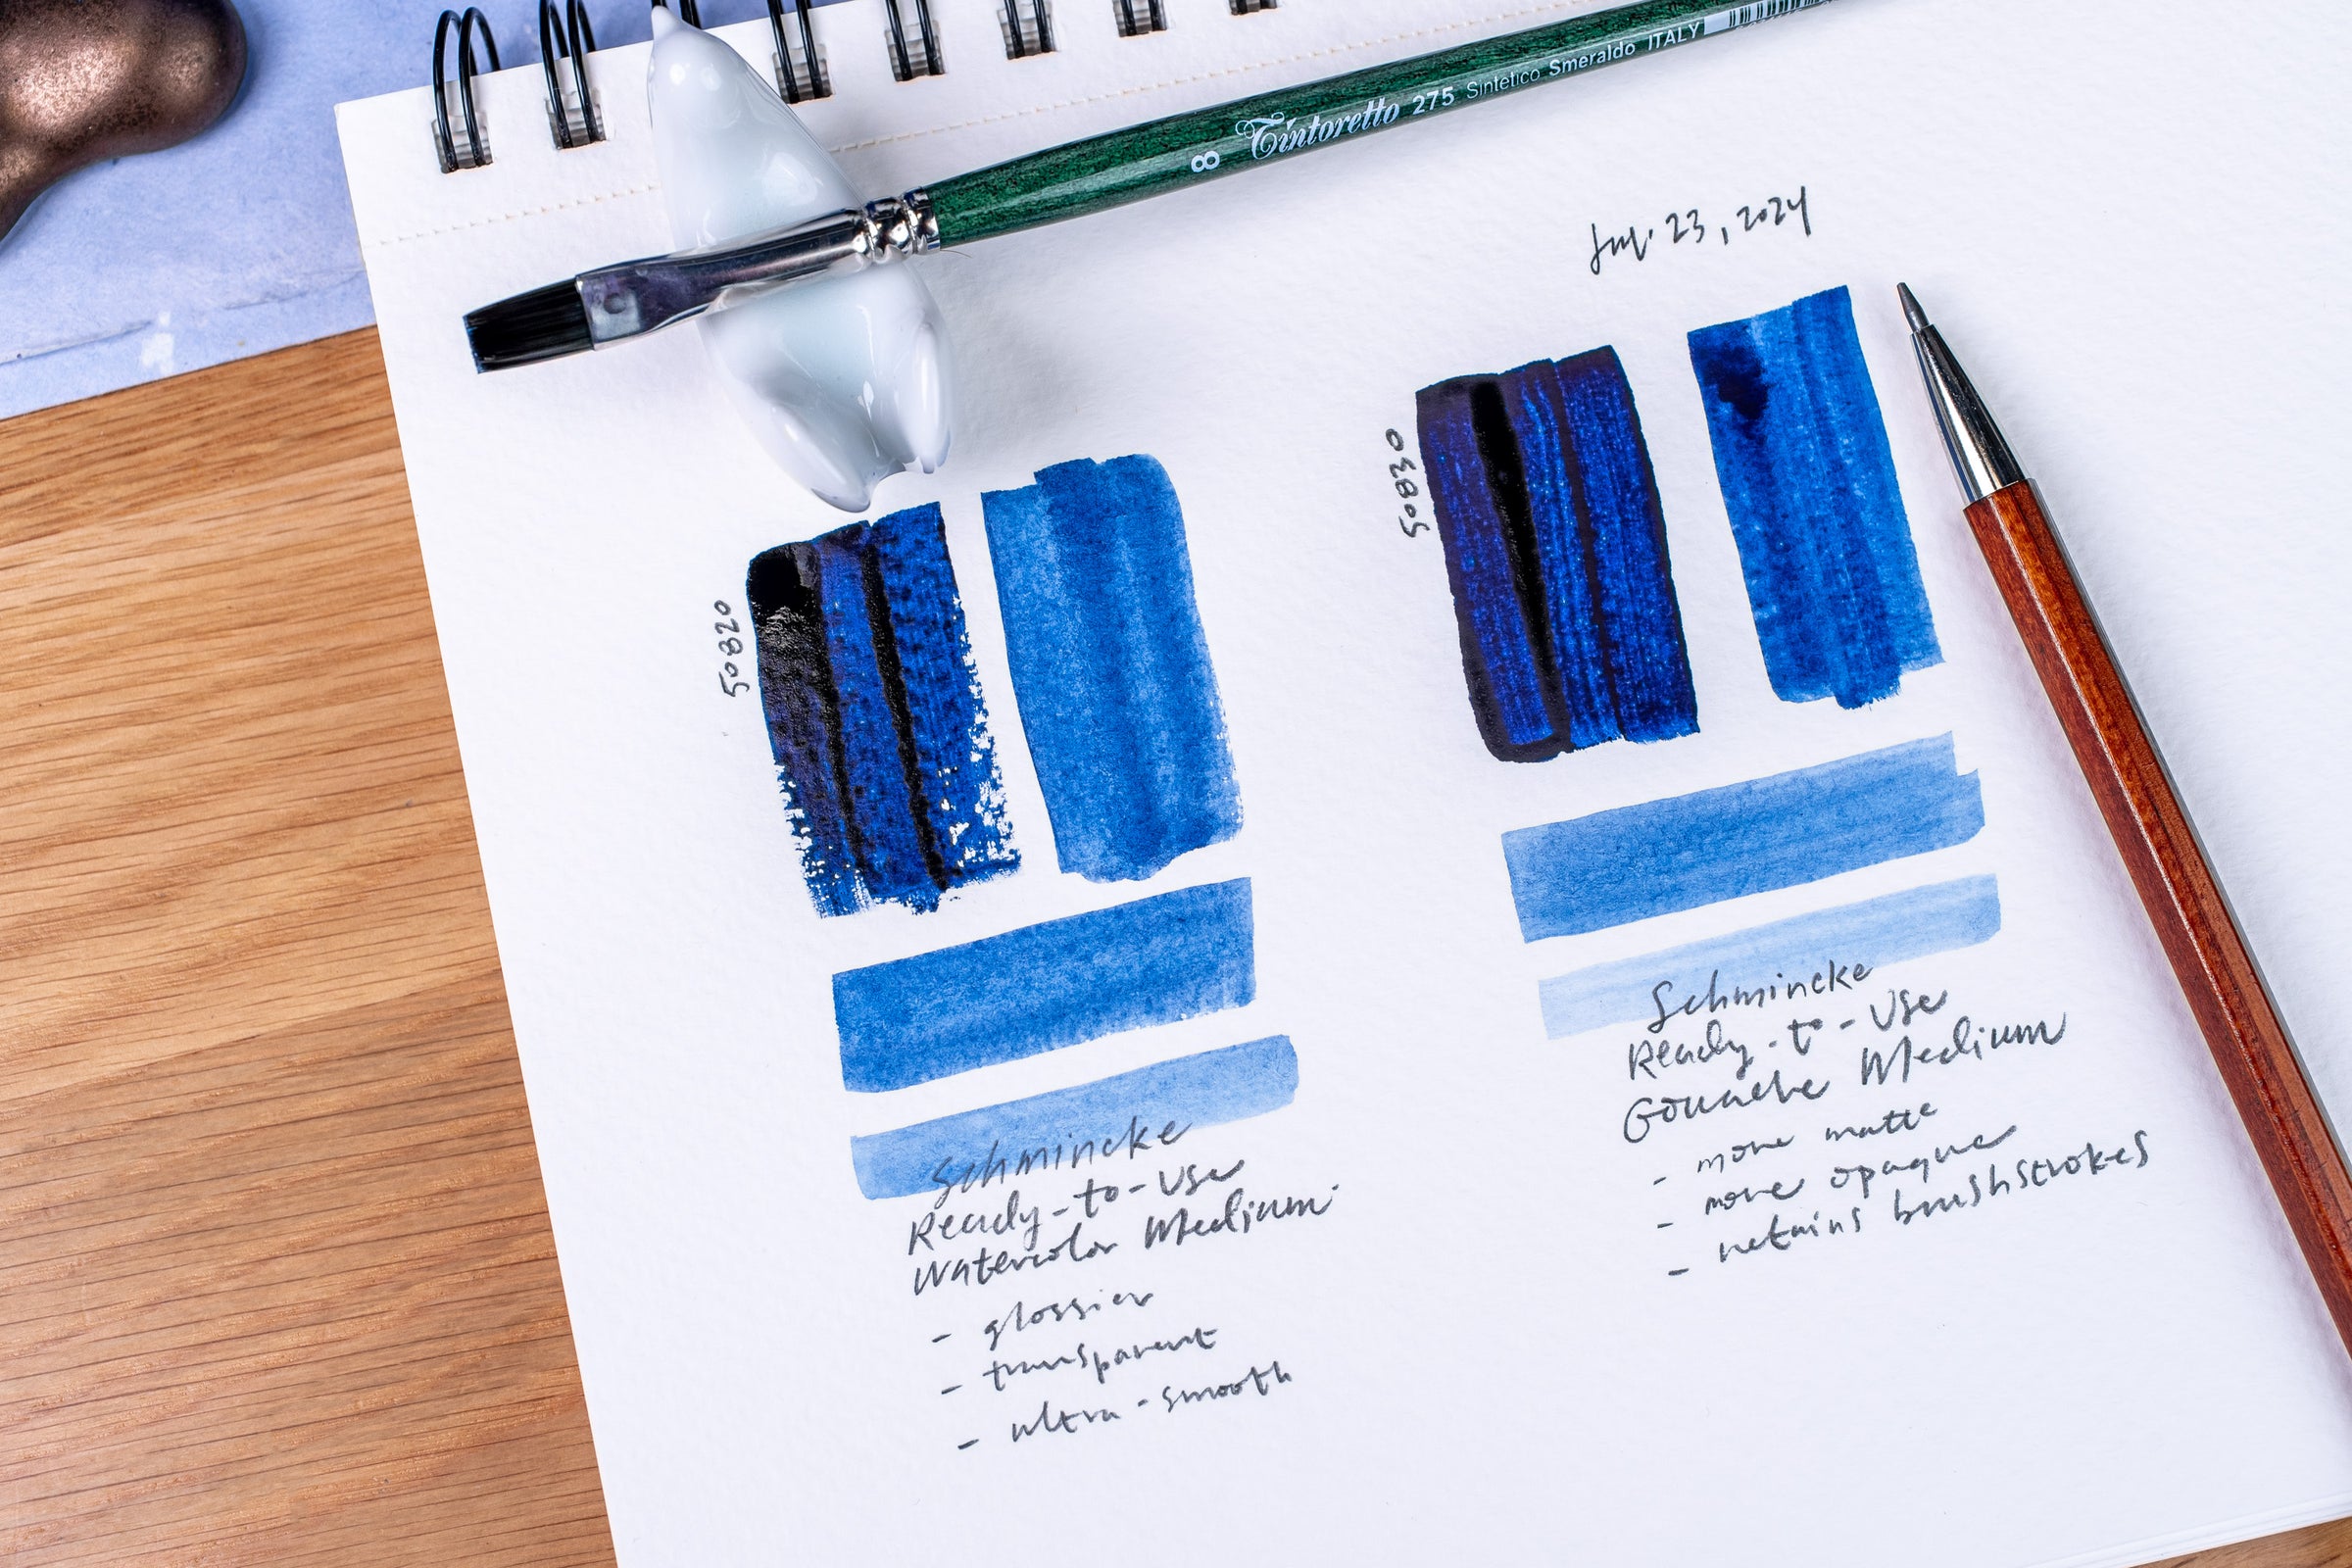 8 Tintoretto 275 Sintetico Smeraldo ITALY
23, 2024
50820
Schmincke
Ready-to-Use
Watercolor Medium
- glossier
- transparent
- ultra-smooth
50830
Schmincke
Ready-to-Use
Gouache Medium
- more matte
- more opaque
- retains brushstrokes